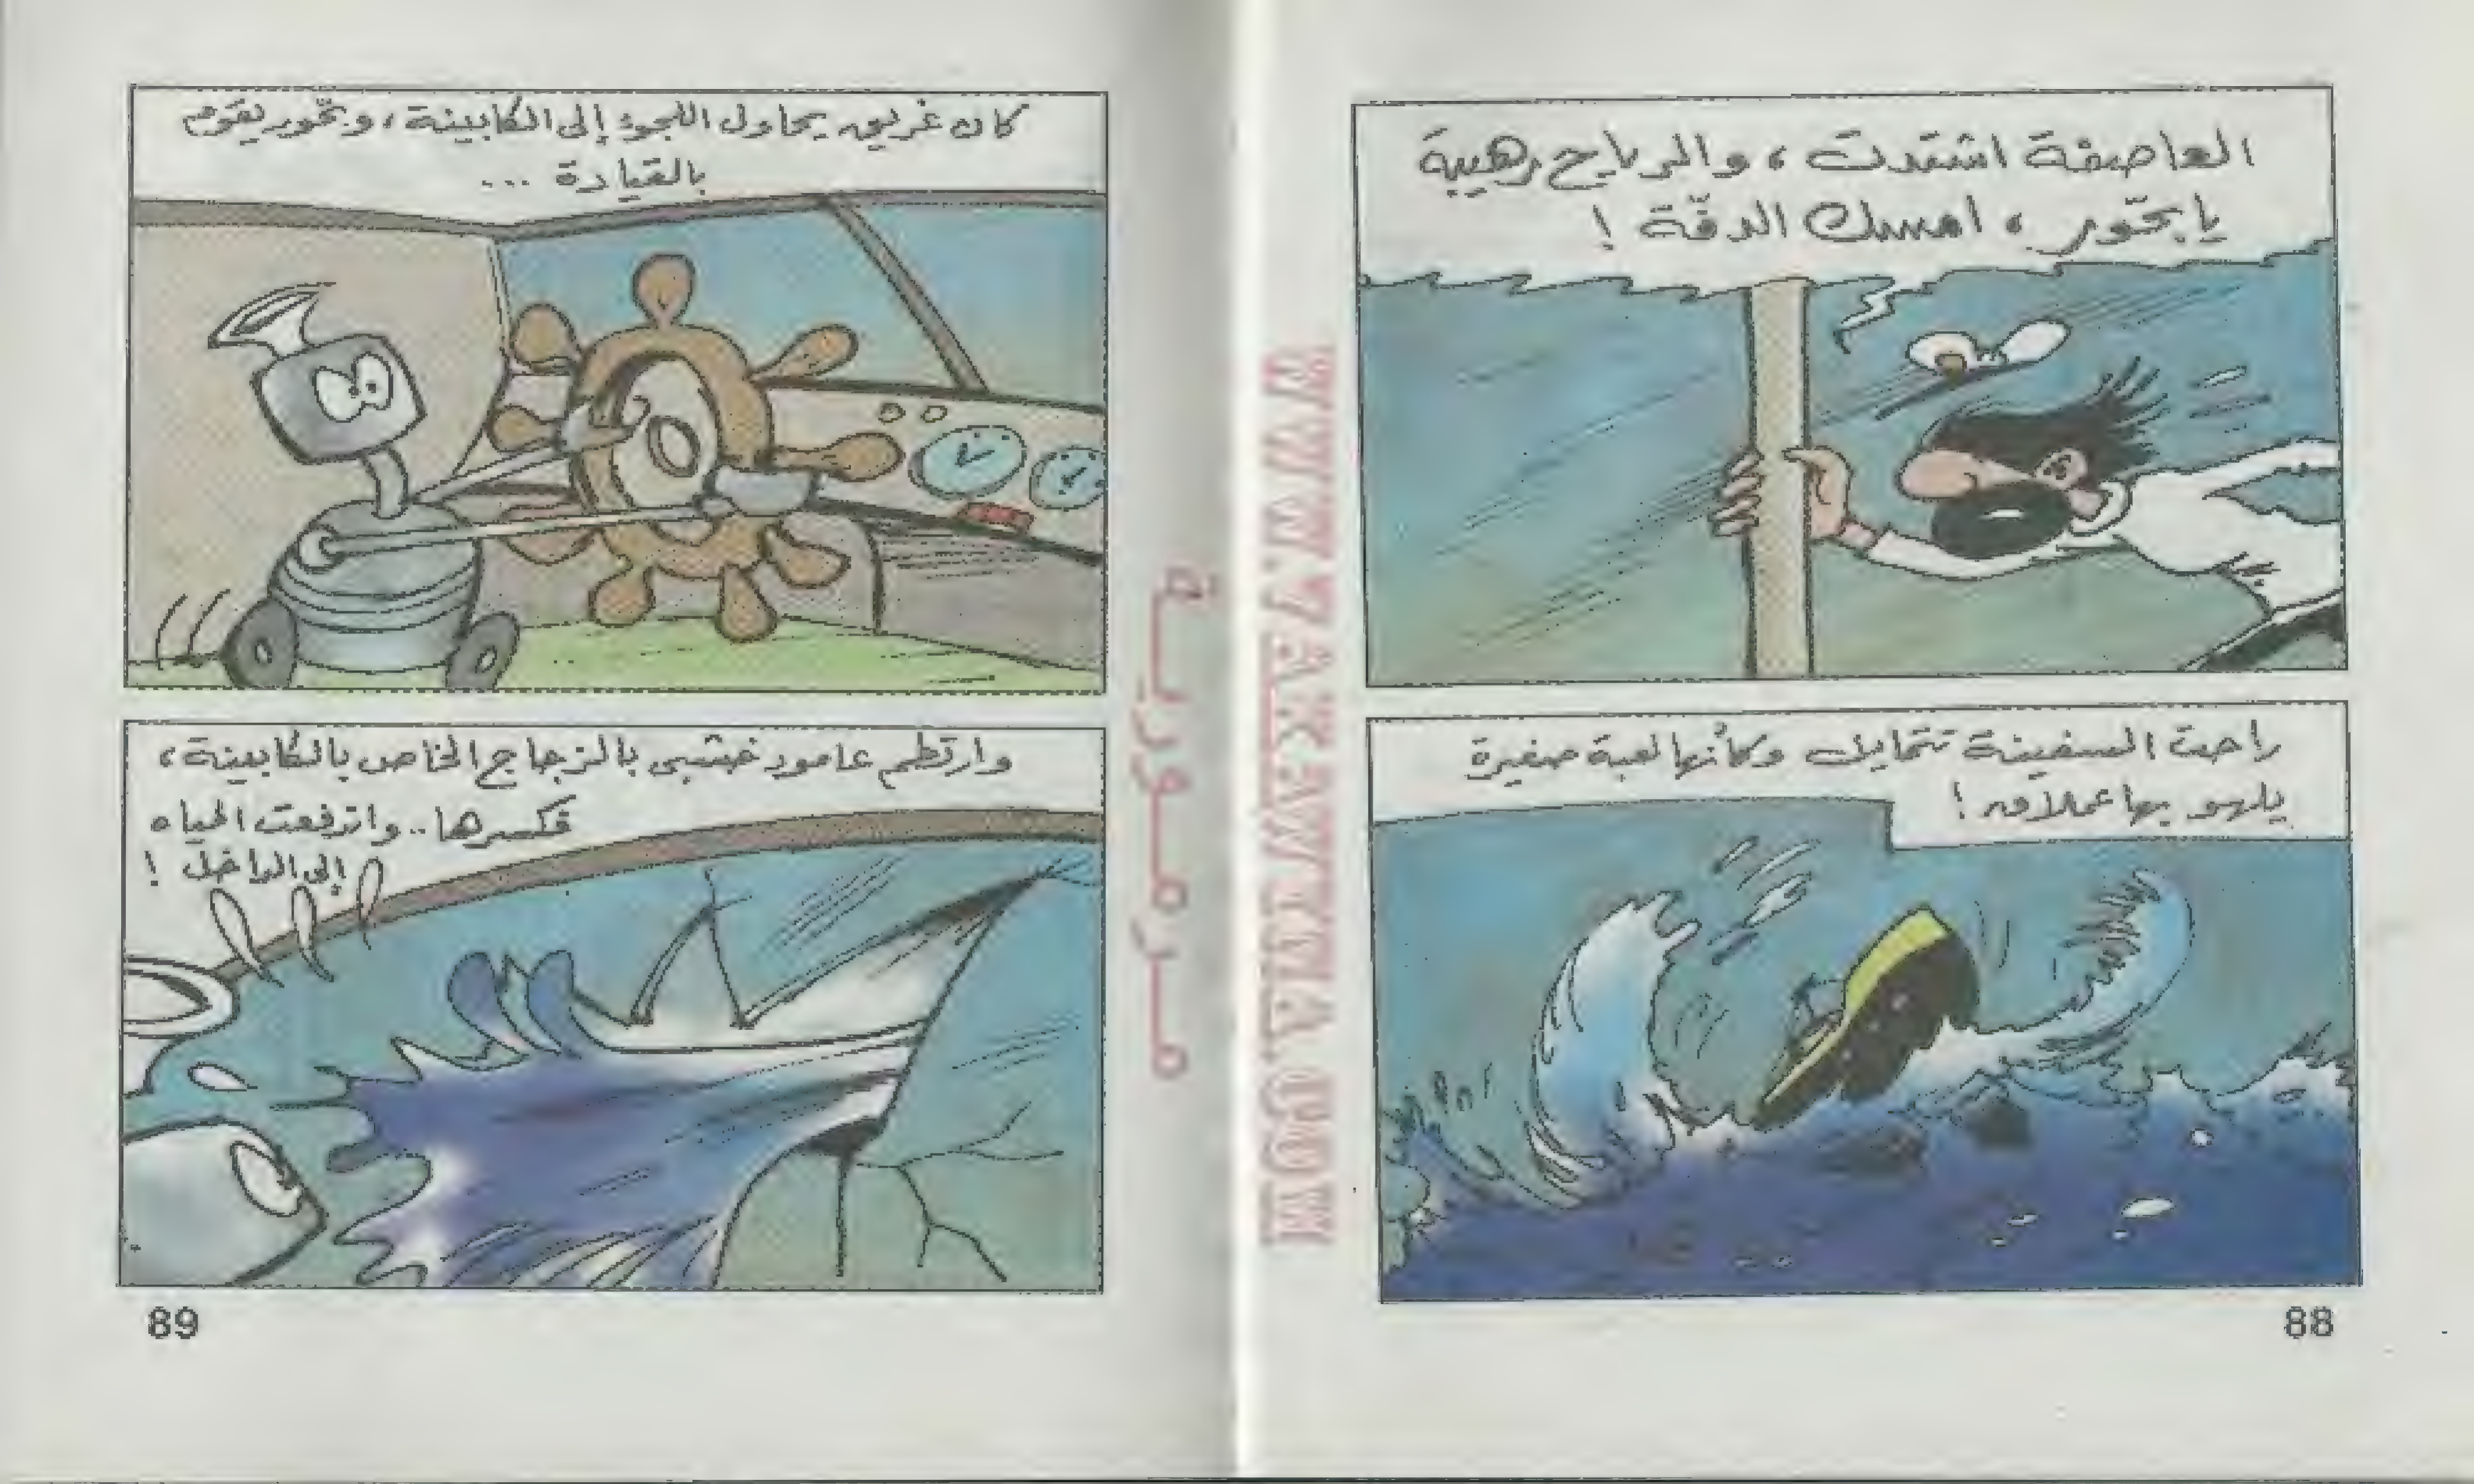 العاصفة اشتدت ، والرياح رهيبة
يا بحّور ، امسك الدفّة !
راحت السفينة تتمايل وكأنها لعبة صغيرة
يلهو بها عملاق !
88
كان غريق يحاول اللجوء إلى الكابينة ، وبحّور يقوم
بالقيادة ...
وارتطم عامود خشبى بالزجاج الخاص بالكابينة ،
فكسرها .. واندفعت المياه
إلى الداخل !
89
مرمورية
WWW.VAKAWKA.COM